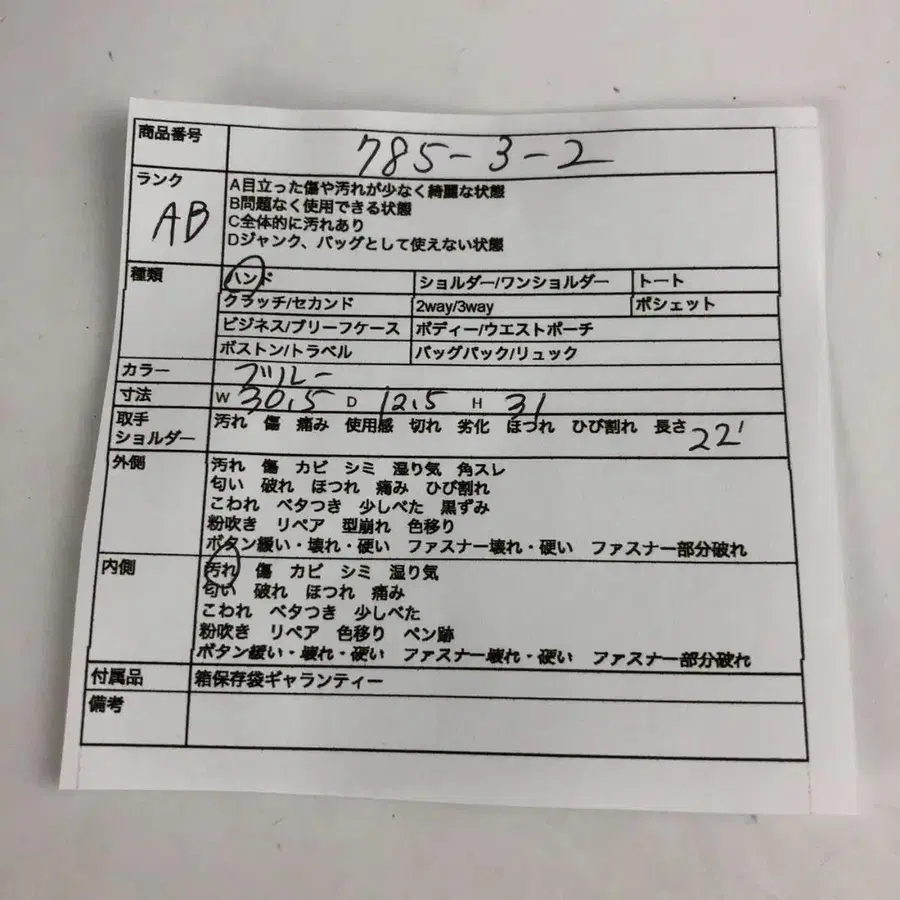 商品番号 785-3-2
ランク AB
A目立った傷や汚れが少なく綺麗な状態
B問題なく使用できる状態
C全体的に汚れあり
Dジャンク、バッグとして使えない状態
種類 ハンド ショルダー/ワンショルダー トート
クラッチ/セカンド 2way/3way ポシェット
ビジネス/ブリーフケース ボディー/ウエストポーチ
ボストン/トラベル バッグパック/リュック
カラー ブルー
寸法 W 30.5 D 12.5 H 31
取手
ショルダー
汚れ 傷 痛み 使用感 切れ 劣化 ほつれ ひび割れ 長さ 22
外側 汚れ 傷 カビ シミ 湿り気 角スレ
匂い 破れ ほつれ 痛み ひび割れ
こわれ ベタつき 少しべた 黒ずみ
粉吹き リペア 型崩れ 色移り
ボタン緩い・壊れ・硬い ファスナー壊れ・硬い ファスナー部分破れ
内側 汚れ 傷 カビ シミ 湿り気
匂い 破れ ほつれ 痛み
こわれ ベタつき 少しべた
粉吹き リペア 色移り ペン跡
ボタン緩い・壊れ・硬い ファスナー壊れ・硬い ファスナー部分破れ
付属品 箱保存袋ギャランティー
備考